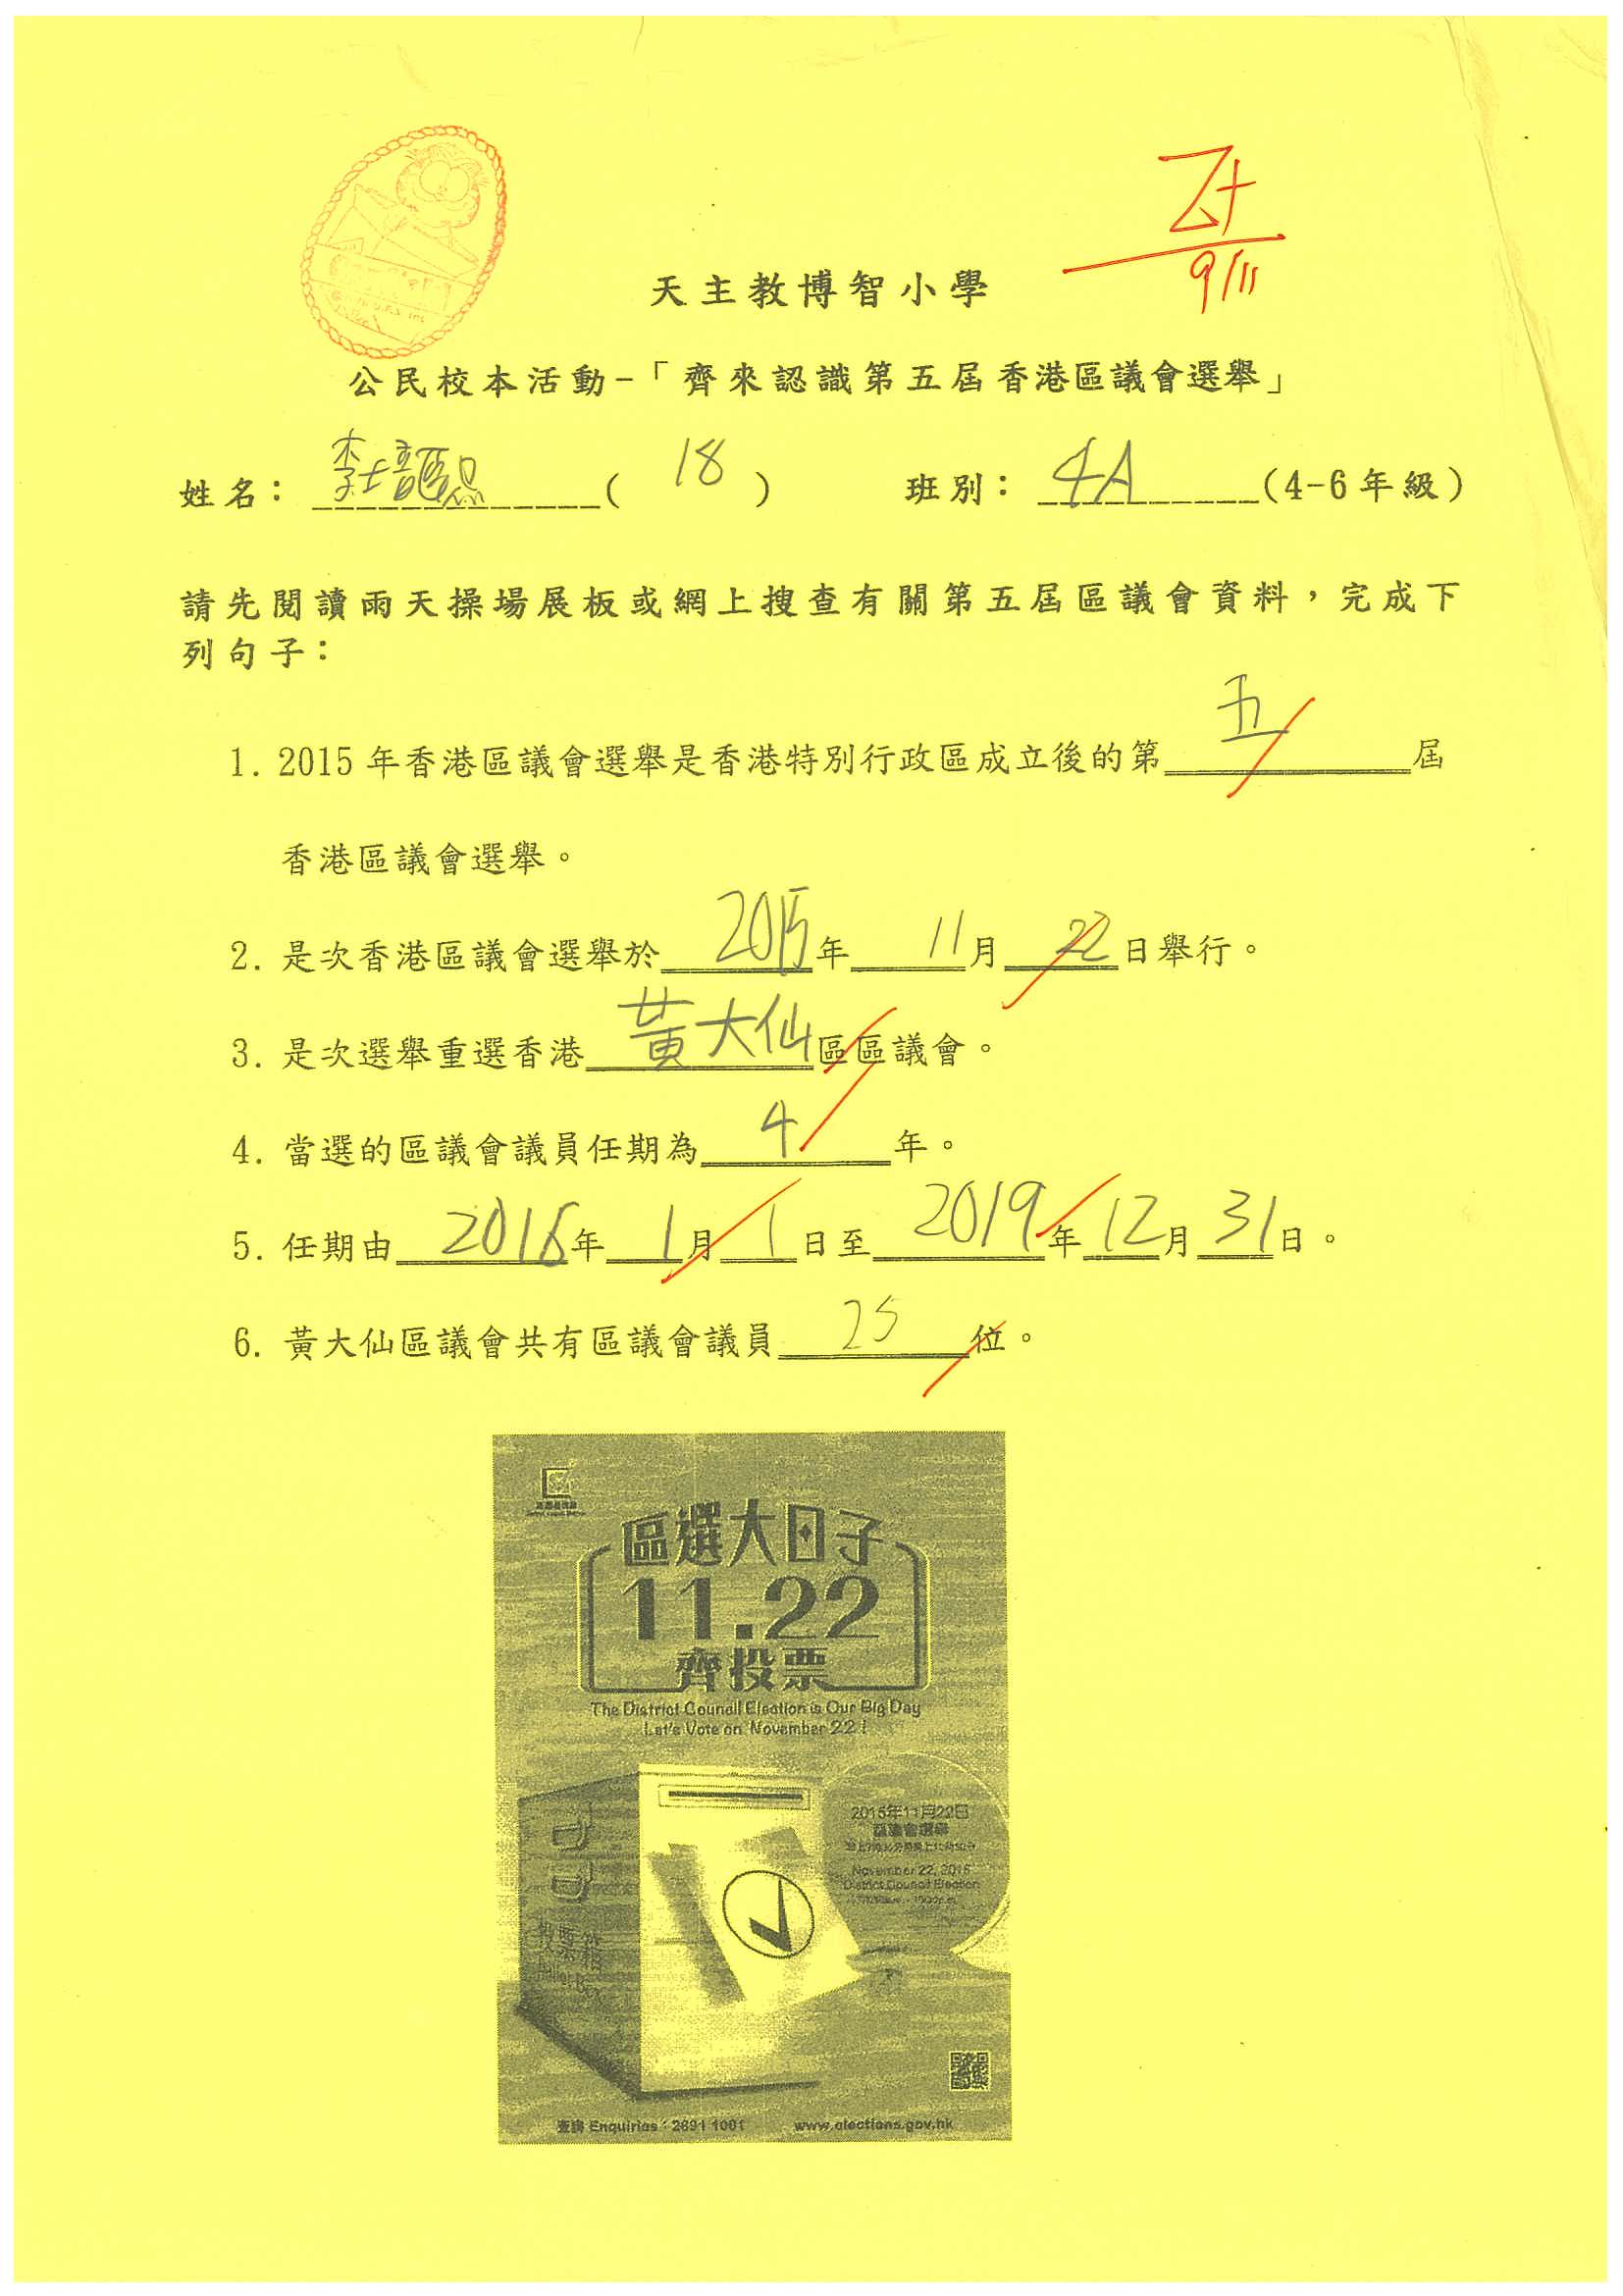 天主教博智小學
9/11
公民校本活動-「齊來認識第五屆香港區議會選舉」
姓名： 李 ( 18 ) 班別： 4A (4-6年級)
請先閱讀雨天操場展板或網上搜查有關第五屆區議會資料，完成下
列句子：
1. 2015年香港區議會選舉是香港特別行政區成立後的第五屆
香港區議會選舉。
2. 是次香港區議會選舉於2015年11月22日舉行。
3. 是次選舉重選香港黃大仙區區議會。
4. 當選的區議會議員任期為4年。
5. 任期由2016年1月1日至2019年12月31日。
6. 黃大仙區議會共有區議會議員25位。
區選大日子
11.22
齊投票
The District Council Election is Our Big Day
Let's Vote on November 22!
2015年11月22日
區議會選舉
November 22, 2015
District Council Election
投票箱
查詢 Enquiries：2891 1001 www.elections.gov.hk